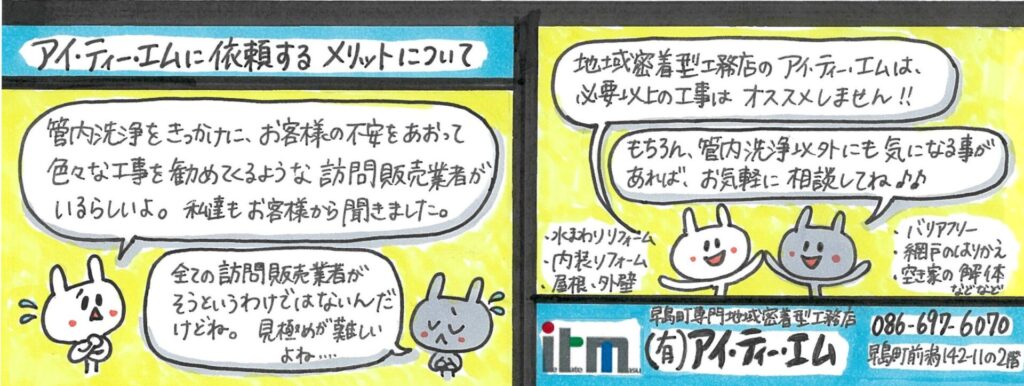 アイ・ティー・エムに依頼する メリットについて
管内洗浄をきっかけに、お客様の不安をあおって
色々な工事を勧めてくるような 訪問販売業者が
いるらしいよ。 私達も お客様から聞きました。
全ての訪問販売業者が
そうというわけではないんだ
けどね。 見極めが難しい
よね….
地域密着型工務店の アイ・ティー・エムは、
必要以上の工事は オススメしません!!
もちろん、管内洗浄以外にも 気になる事が
あれば、お気軽に 相談してね♪♪
・水まわりリフォーム
・内装リフォーム
・屋根・外壁
・バリアフリー
・網戸のはりかえ
・空き家の解体
などなど
itm
早島町専門地域密着型工務店
(有)アイ・ティー・エム
086-697-6070
早島町前潟142-11の2階